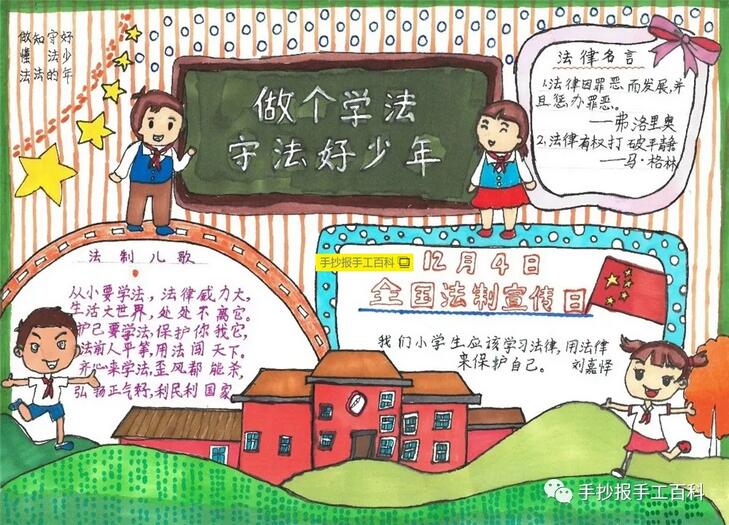 做知守好
懂 法少
法法的年
做个学法
守法好少年
法律名言
1.法律因罪恶而发展,并
且惩办罪恶。
——弗洛里奥
2、法律有权打破平静
——马·格林
法制儿歌
从小要学法,法律威力大,
生活大世界,处处不离它。
护己要学法,保护你我它,
法前人平等,用法闯天下。
齐心来学法,歪风都能杀,
弘扬正气,利民利国家
手抄报手工百科
12月4日
全国法制宣传日
我们小学生应该学习法律,用法律
来保护自己。 刘嘉怿
手抄报手工百科